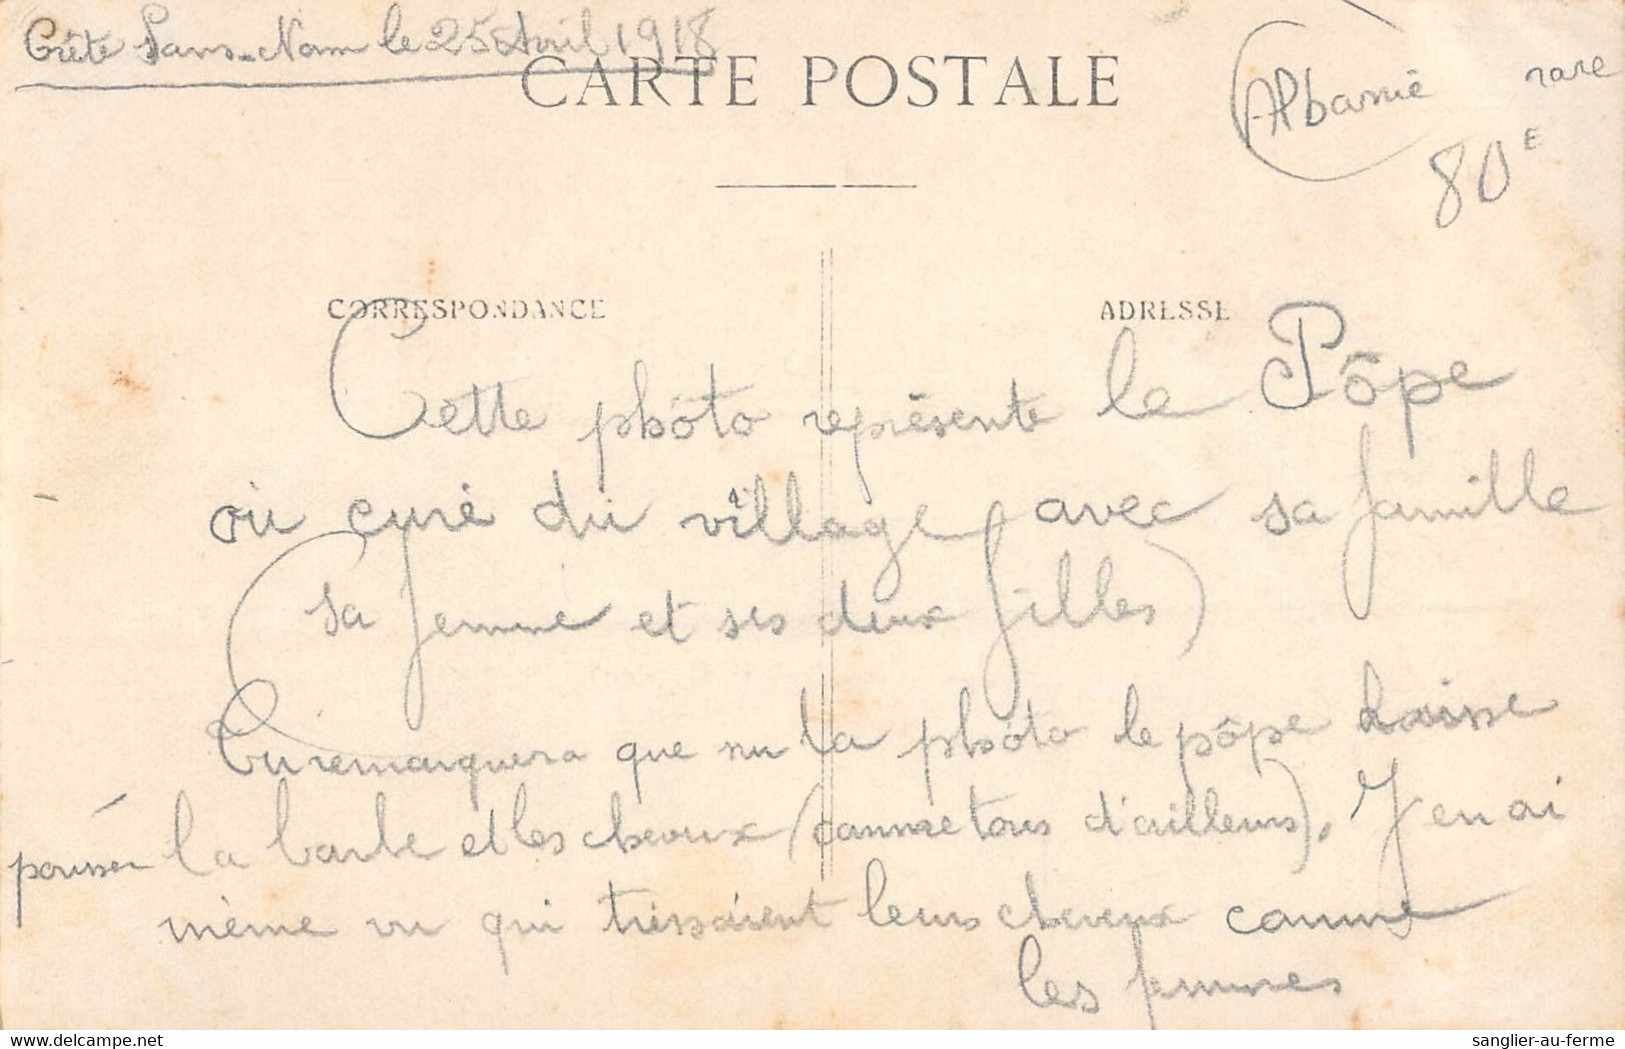 Crête Sans-Nom le 25 Avril 1918
CARTE POSTALE
Albanie
rare
80E
CORRESPONDANCE
ADRESSE
Cette phóto représente le Pôpe
où curé du village avec sa famille
(sa femme et ses deux filles)
Tu remarquera que su la phóto le pôpe laisse
pousser la barbe et les cheveux (comme tous d'ailleurs). J'en ai
même vu qui tressaient leurs cheveux comme
les femmes
delcampe.net
sanglier-au-ferme